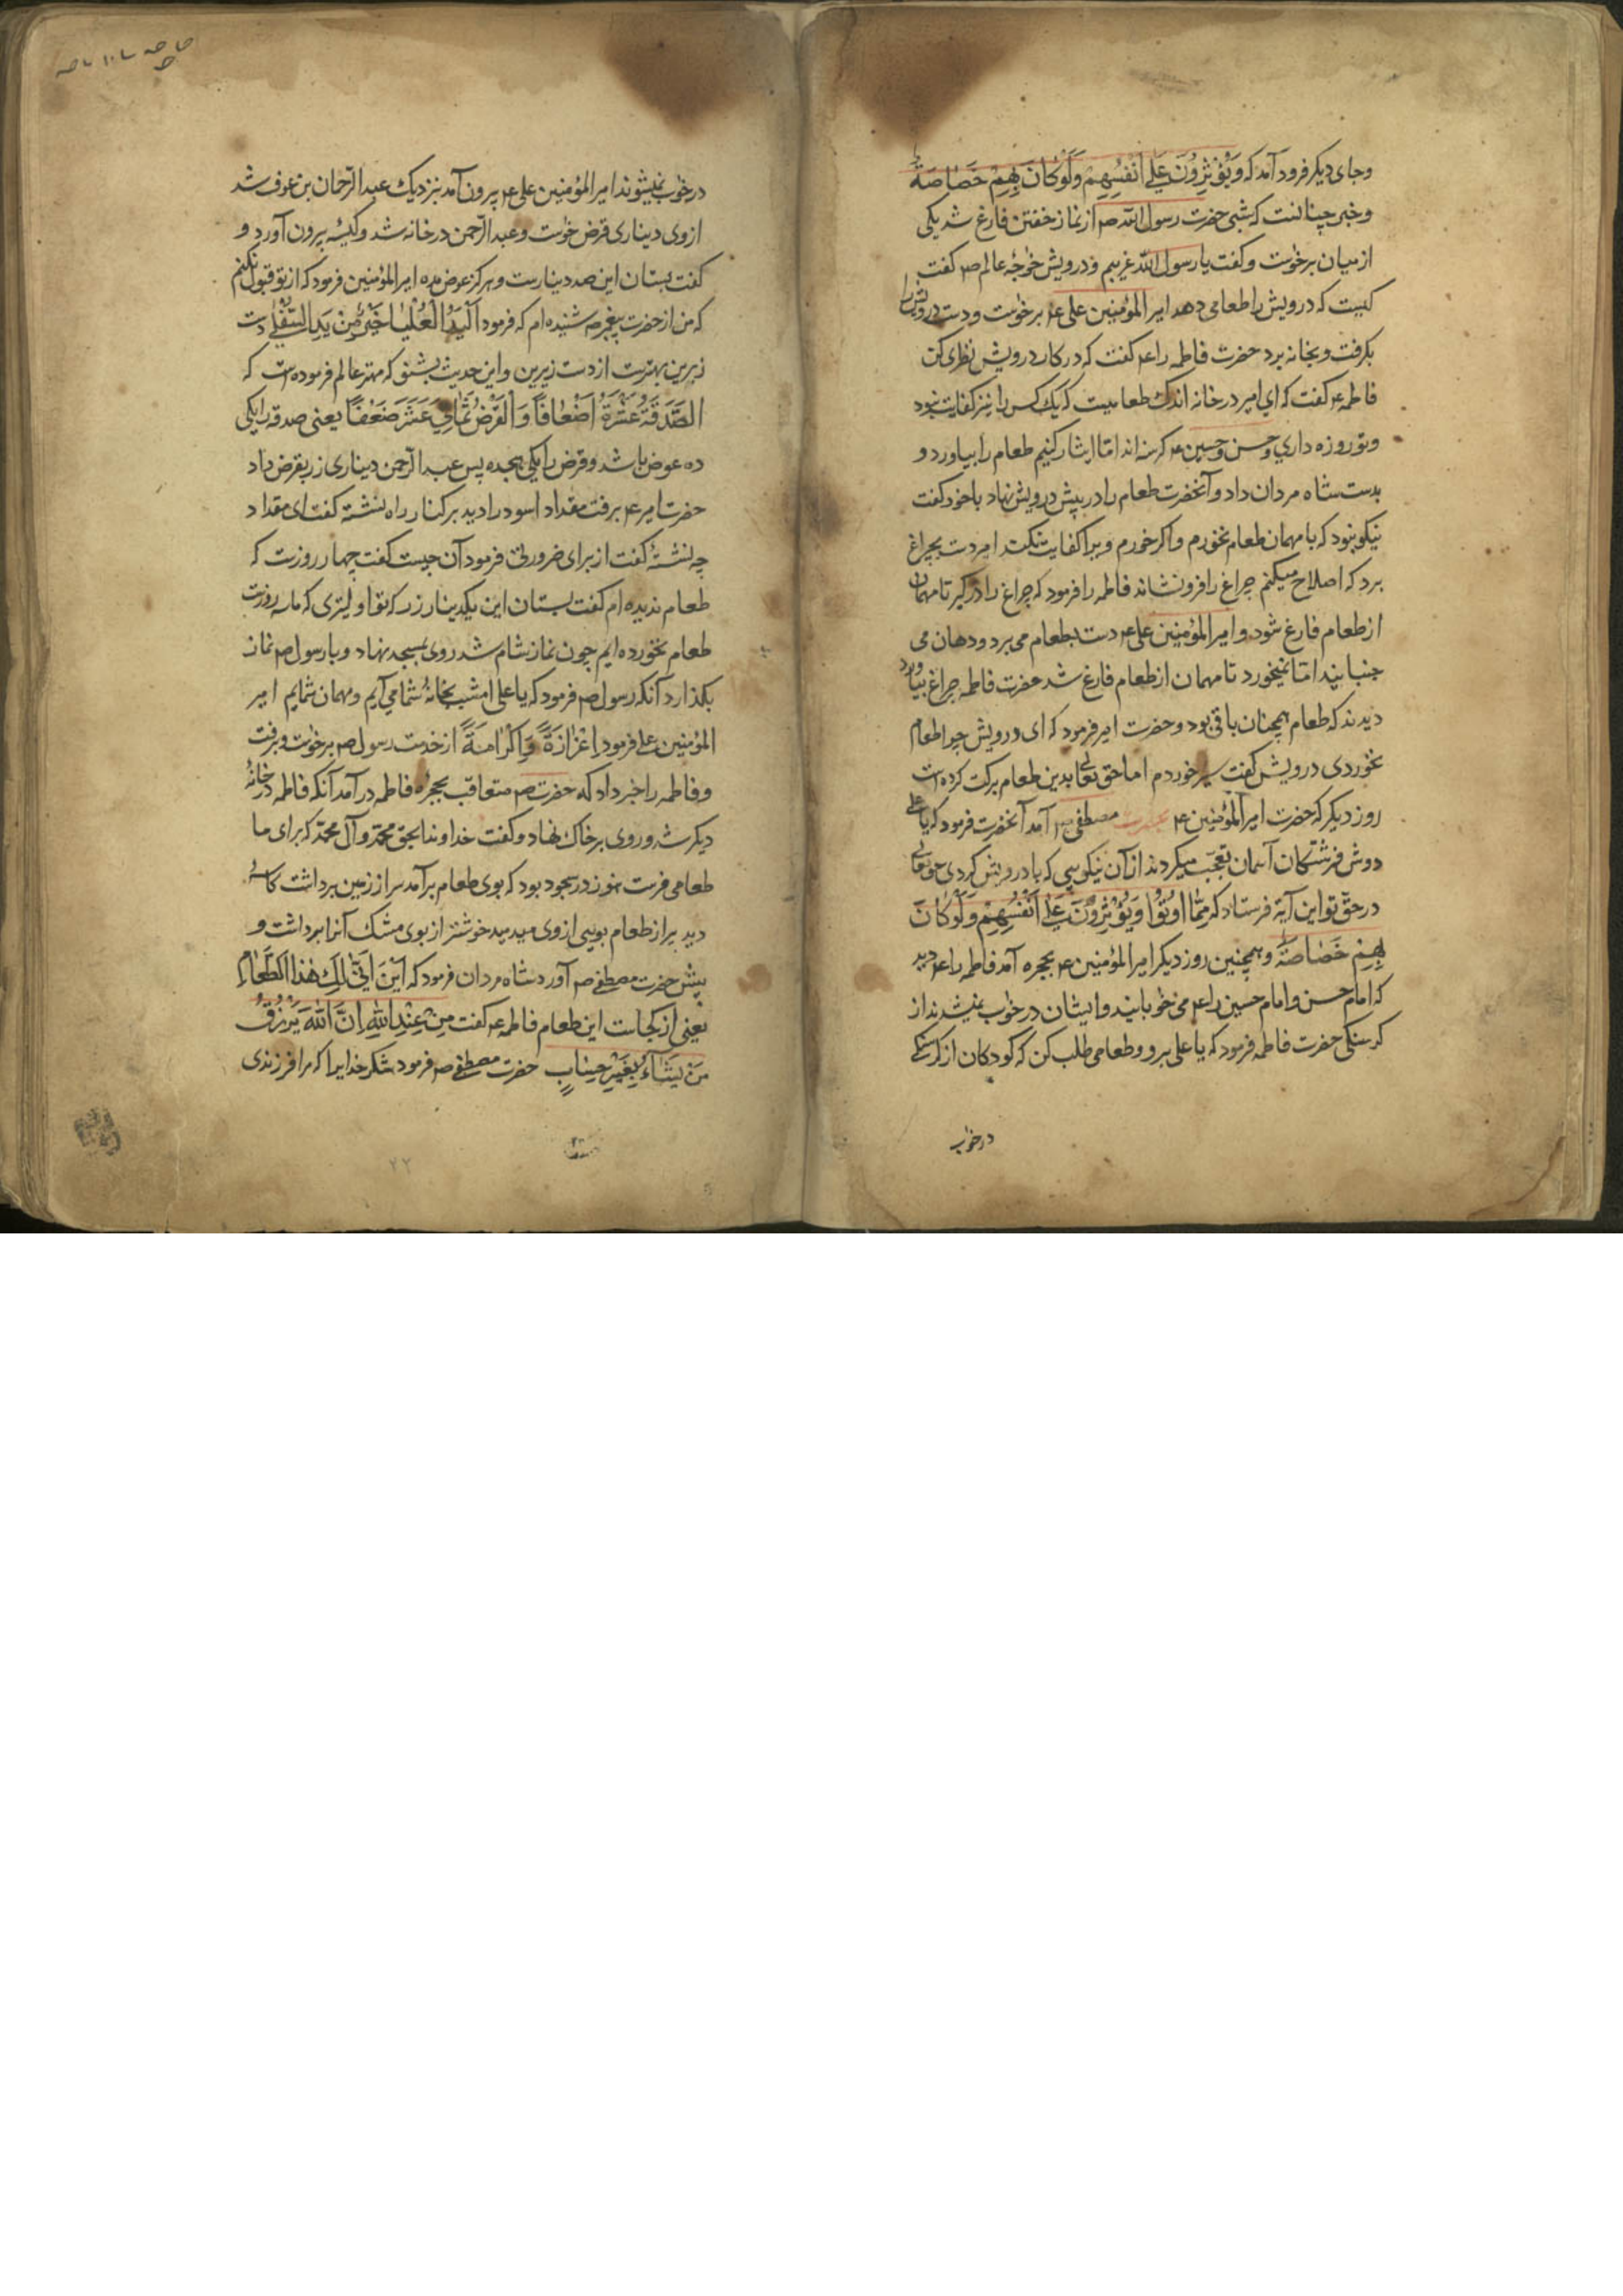 وجای دیکر فرود آمد که وَیُؤْثِرُونَ عَلٰی اَنْفُسِهِمْ وَلَوْکَانَ بِهِمْ خَصٰاصَةٌ
وخبر چنانست که شبی حضرت رسول اللّه ص از نماز خفتن فارغ شد یکی
از میان برخواست وکفت یا رسول اللّه غریبم ودرویش خوٰجۀ عالم ص کفت
کیست که درویش را طعامی دهد امیر المؤمنین علی ع برخواست ودست درویش را
بکرفت وبخانه برد حضرت فاطمه را ع کفت که در کار درویش نظری کن
فاطمه ع کفت که ای امیر در خانه اندک طعامیست که یک کس را نیز کفایت نبود
وتو روزه داری وحسن وحسین ع کرسنه اند اما ایثار کنیم طعام را بیاورد و
بدست شاه مردان داد وآنحضرت طعام را در پیش درویش نهاد با خود کفت
نیکو نبود که با مهمان طعام نخورم واکر خورم ویرا کفایت نکند امیر دست بچراغ
برد که اصلاح میکنم چراغ را فرو نشاند فاطمه را فرمود که چراغ را در کیر تا مهمان
از طعام فارغ شود وامیر المؤمنین علی ع دست بطعام می برد ودهان می
جنبانید اما نمیخورد تا مهمان از طعام فارغ شد حضرت فاطمه چراغ بیاورد
دیدند که طعام همچنان باقی بود وحضرت امیر فرمود که ای درویش چرا طعام
نخوردی درویش کفت سیر خوردم اما حق تعالی بدین طعام برکت کرده است
روز دیکر که حضرت امیر المؤمنین ع بحضرت مصطفی ص آمد آنحضرت فرمود که یا علی
دوش فرشتکان آسمان تعجب میکردند از آن نیکویی که با درویش کردی حق تعالی
در حقّ تو این آیة فرستاد که مِمّٰا اُوتُوْا وَیُؤْثِرُوْنَ عَلٰی اَنْفُسِهِمْ وَلَوْکَانَ
بِهِمْ خَصٰاصَةٌ وهمچنین روز دیکر امیر المؤمنین ع بحجره آمد فاطمه را ع دید
که امام حسن وامام حسین را ع می خوٰبانید وایشان در خوٰب نمیشدند از
کرسنکی حضرت فاطمه فرمود که یا علی برو وطعامی طلب کن که کودکان از کرسنکی
در خوٰب
در خوٰب نمیشوند امیر المؤمنین علی ع بیرون آمد بنزدیک عبد الرّحمان بن عوف شد
از وی دیناری قرض خوٰست وعبد الرّحمن در خانه شد وکیسۀ بیرون آورد و
کفت بستان این صد دینارست وهرکز عوض مده امیر المؤمنین فرمود که از تو قبول نکنم
که من از حضرت پیغمبر ص شنیده ام که فرمود اَلْیَدُ الْعُلْیٰا خَیْرٌ مِنْ یَدِ السُّفْلٰی دست
زبرین بهترست از دست زیرین واین حدیث بشنو که مهتر عالم فرموده است که
الصَّدَقَةُ عَشَرَةُ اَضْعٰافًا وَالْقَرْضُ ثَمٰانِیَ عَشَرَ ضَعْفًا یعنی صدقه را یکی
ده عوض باشد وقرض را یکی هجده پس عبد الرّحمن دیناری زر بقرض داد
حضرت امیر ع برفت مقداد اسود را دید بر کنار راه نشسته کفت ای مقداد
چه نشستۀ کفت از برای ضرورتی فرمود آن چیست کفت چهار روزست که
طعام ندیده ام کفت بستان این یکدینار زر که تو اولیتری که ما سه روزست
طعام نخورده ایم چون نماز شام شد روی بمسجد نهاد وبا رسول ص نماز
بکذارد آنکه رسول ص فرمود که یا علی امشب بخانۀ شما می آیم ومهمان شمایم امیر
المؤمنین علی فرمود اِعْزٰازَةً وَاِکْرٰامَةً از خدمت رسول ص برخوٰست وبرفت
وفاطمه را خبر داد که حضرت ص متعاقب بحجرۀ فاطمه در آمد آنکه فاطمه در خانۀ
دیکر شد وروی بر خاک نهاد وکفت خداوندا بحق محمّد وآل محمّد که برای ما
طعامی فرست هنوز در سجود بود که بوی طعام برآمد سر از زمین برداشت کاسۀ
دید پر از طعام بویی از وی میدمید خوشتر از بوی مشک آنرا برداشت و
پیش حضرت مصطفی ص آورد شاه مردان فرمود که اَیْنَ اَنّٰی لَكِ هٰذَا الطَّعٰامُ
یعنی از کجاست این طعام فاطمه ع کفت مِنْ عِنْدِ اللّٰهِ اِنَّ اللّٰهَ یَرْزُقُ
مَنْ یَشٰآءُ بِغَیْرِ حِسٰابٍ حضرت مصطفی ص فرمود شکر خدایرا که مرا فرزندی
۲۲